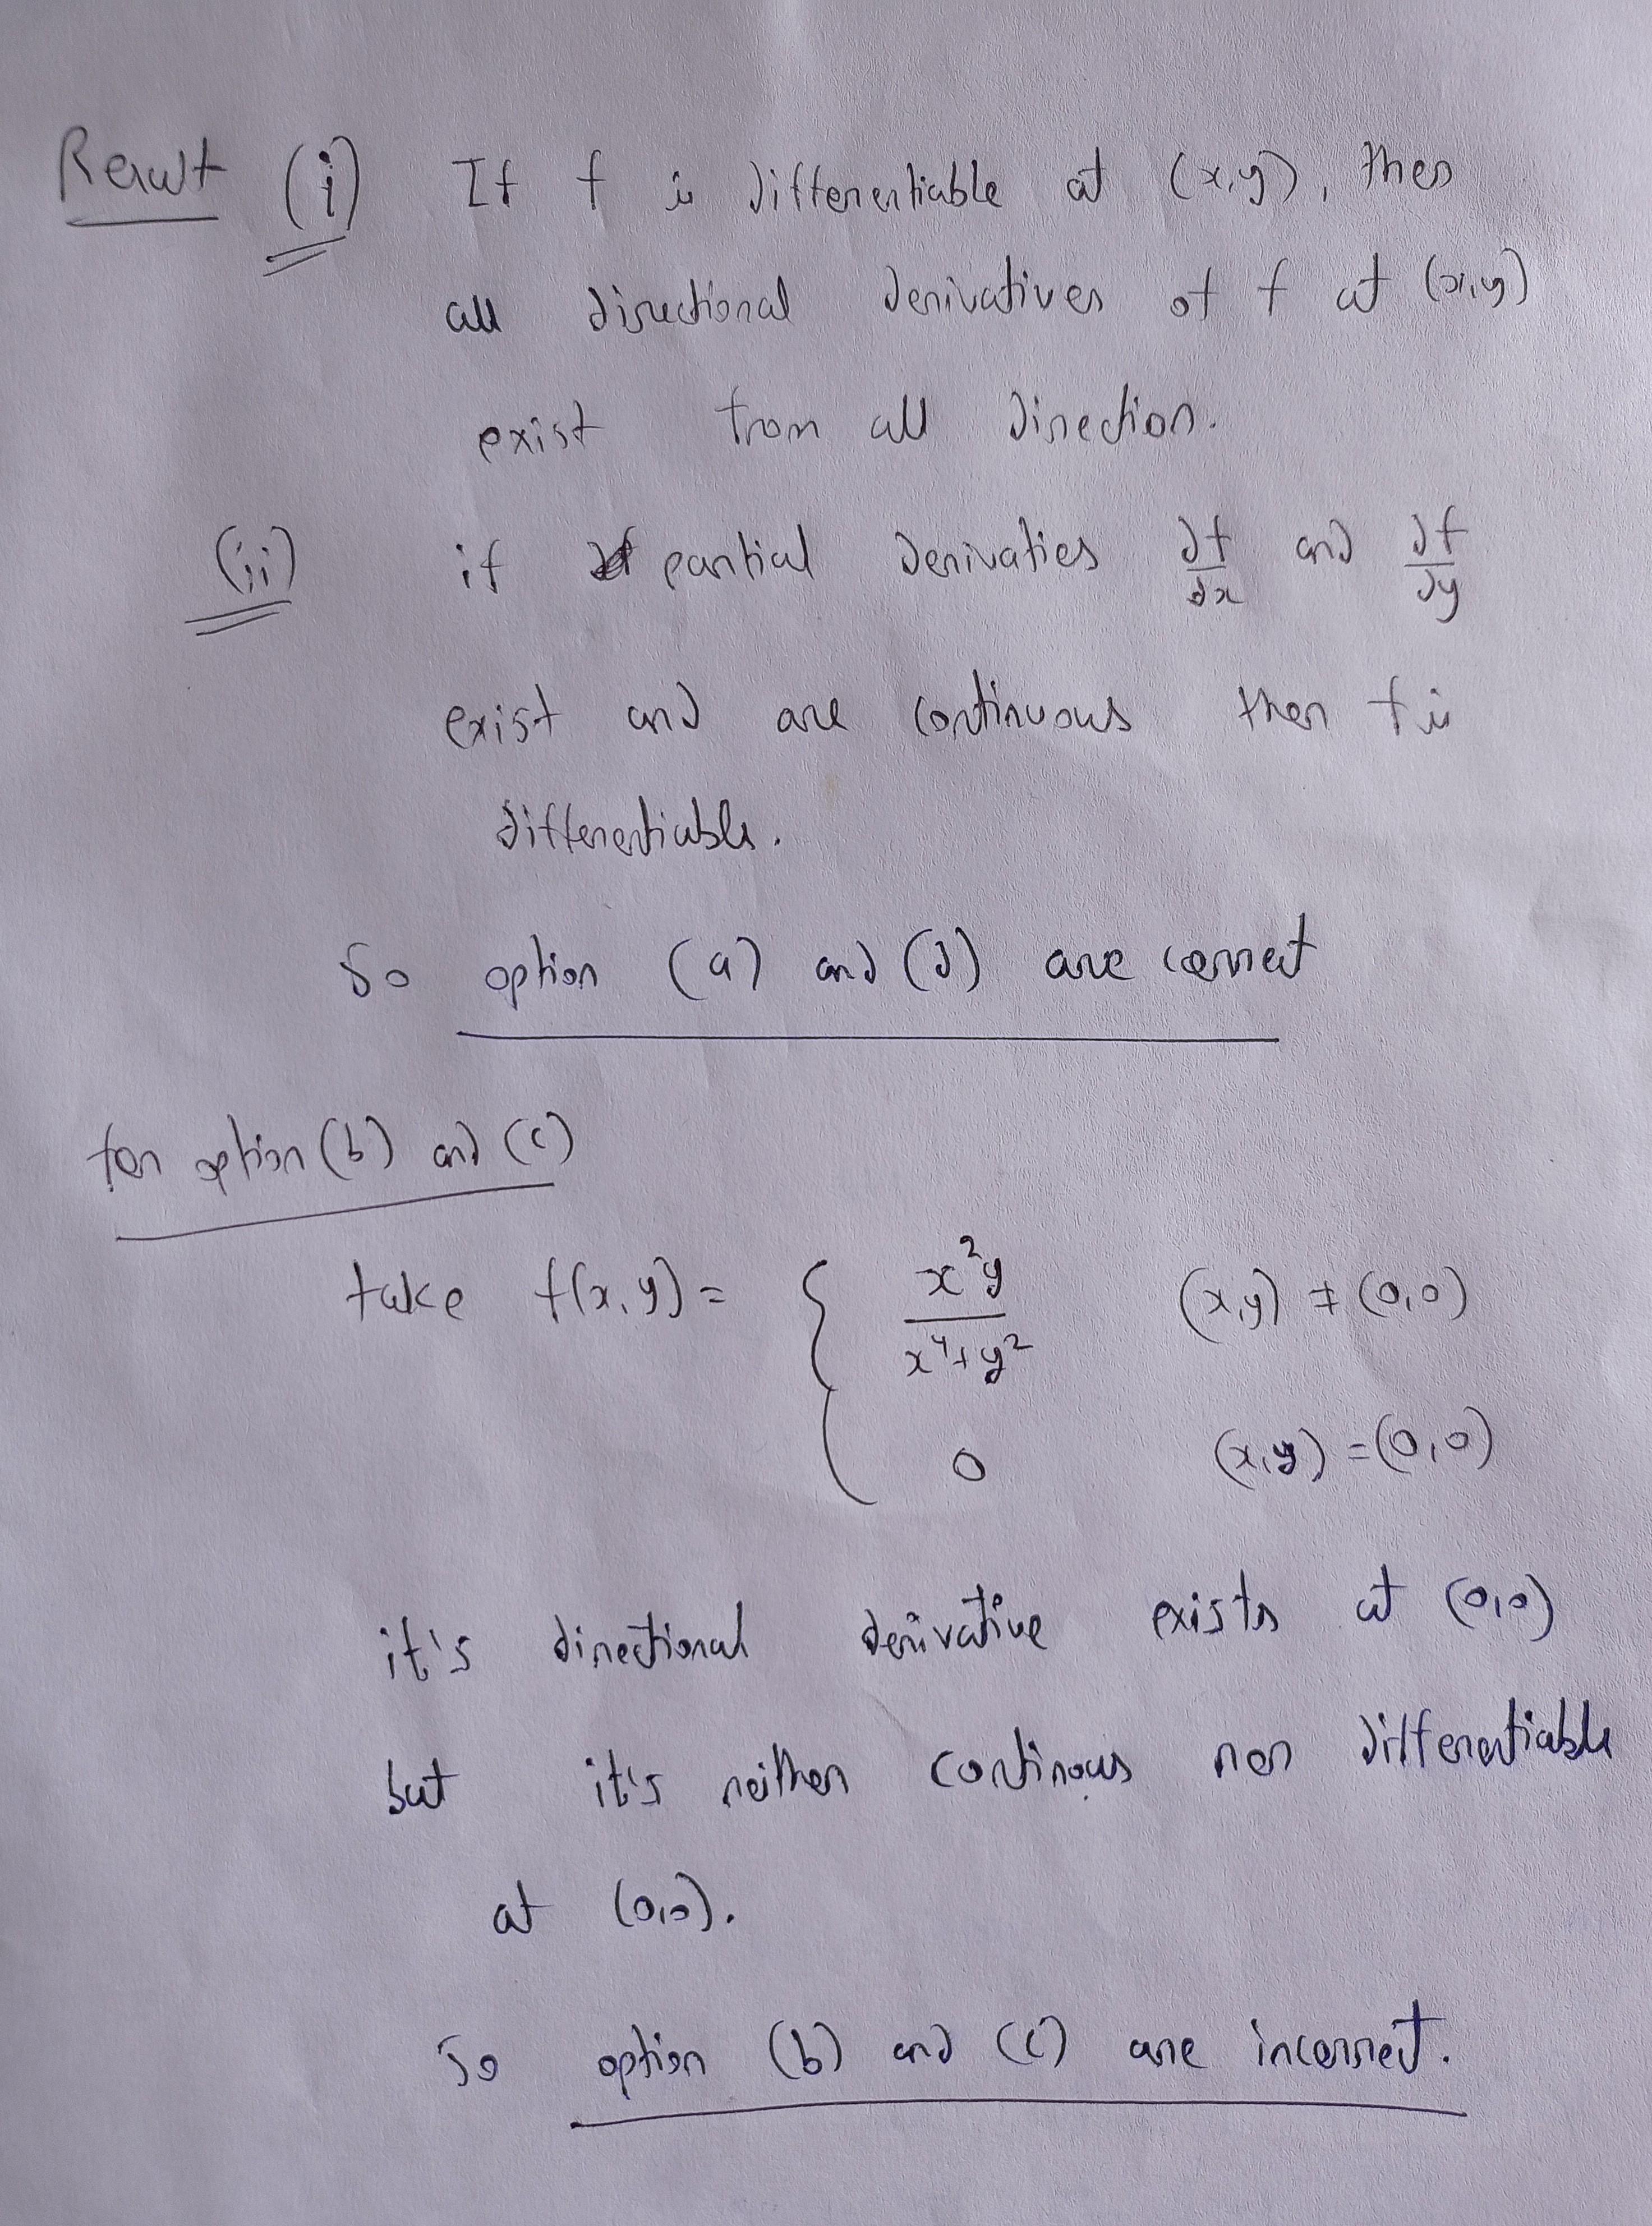 Result (i) If f is differentiable at (x,y), then
all directional derivatives of f at (x,y)
exist from all direction.
(ii) if partial derivaties ∂f/∂x and ∂f/∂y
exist and are continuous then f is
differentiable.
So option (a) and (d) are correct
for option (b) and (c)
take f(x,y) = { x²y / x⁴+y² (x,y) ≠ (0,0)
0 (x,y) = (0,0)
it's directional derivative exists at (0,0)
but it's neither continous nor differentiable
at (0,0).
So option (b) and (c) are incorrect.